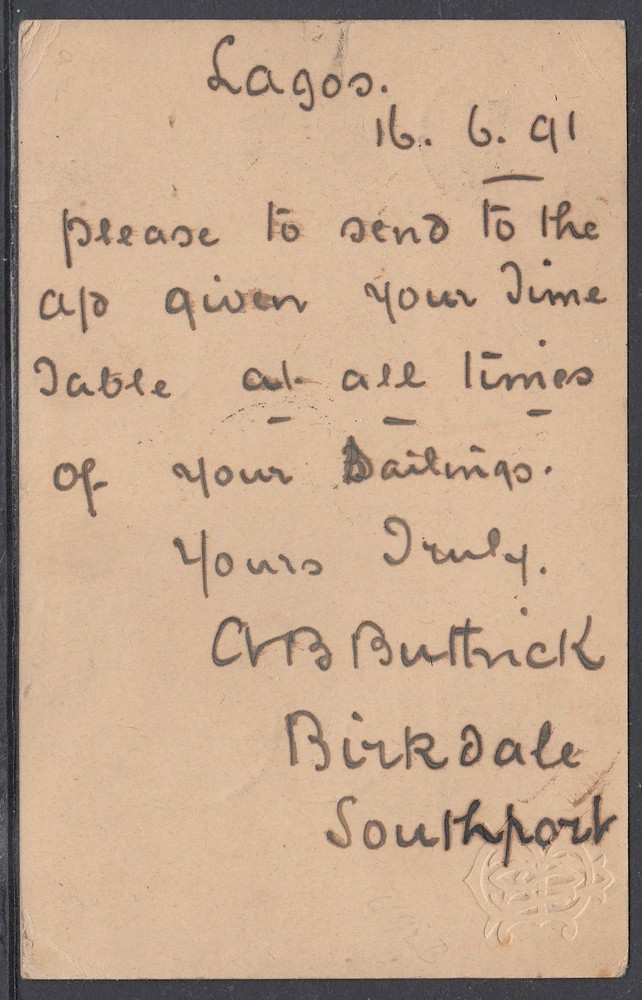 Lagos.
16. 6. 91
please to send to the
a/d given your Time
Table at all times
of your Sailings.
Yours Truly.
B Buttrick
Birkdale
Southport